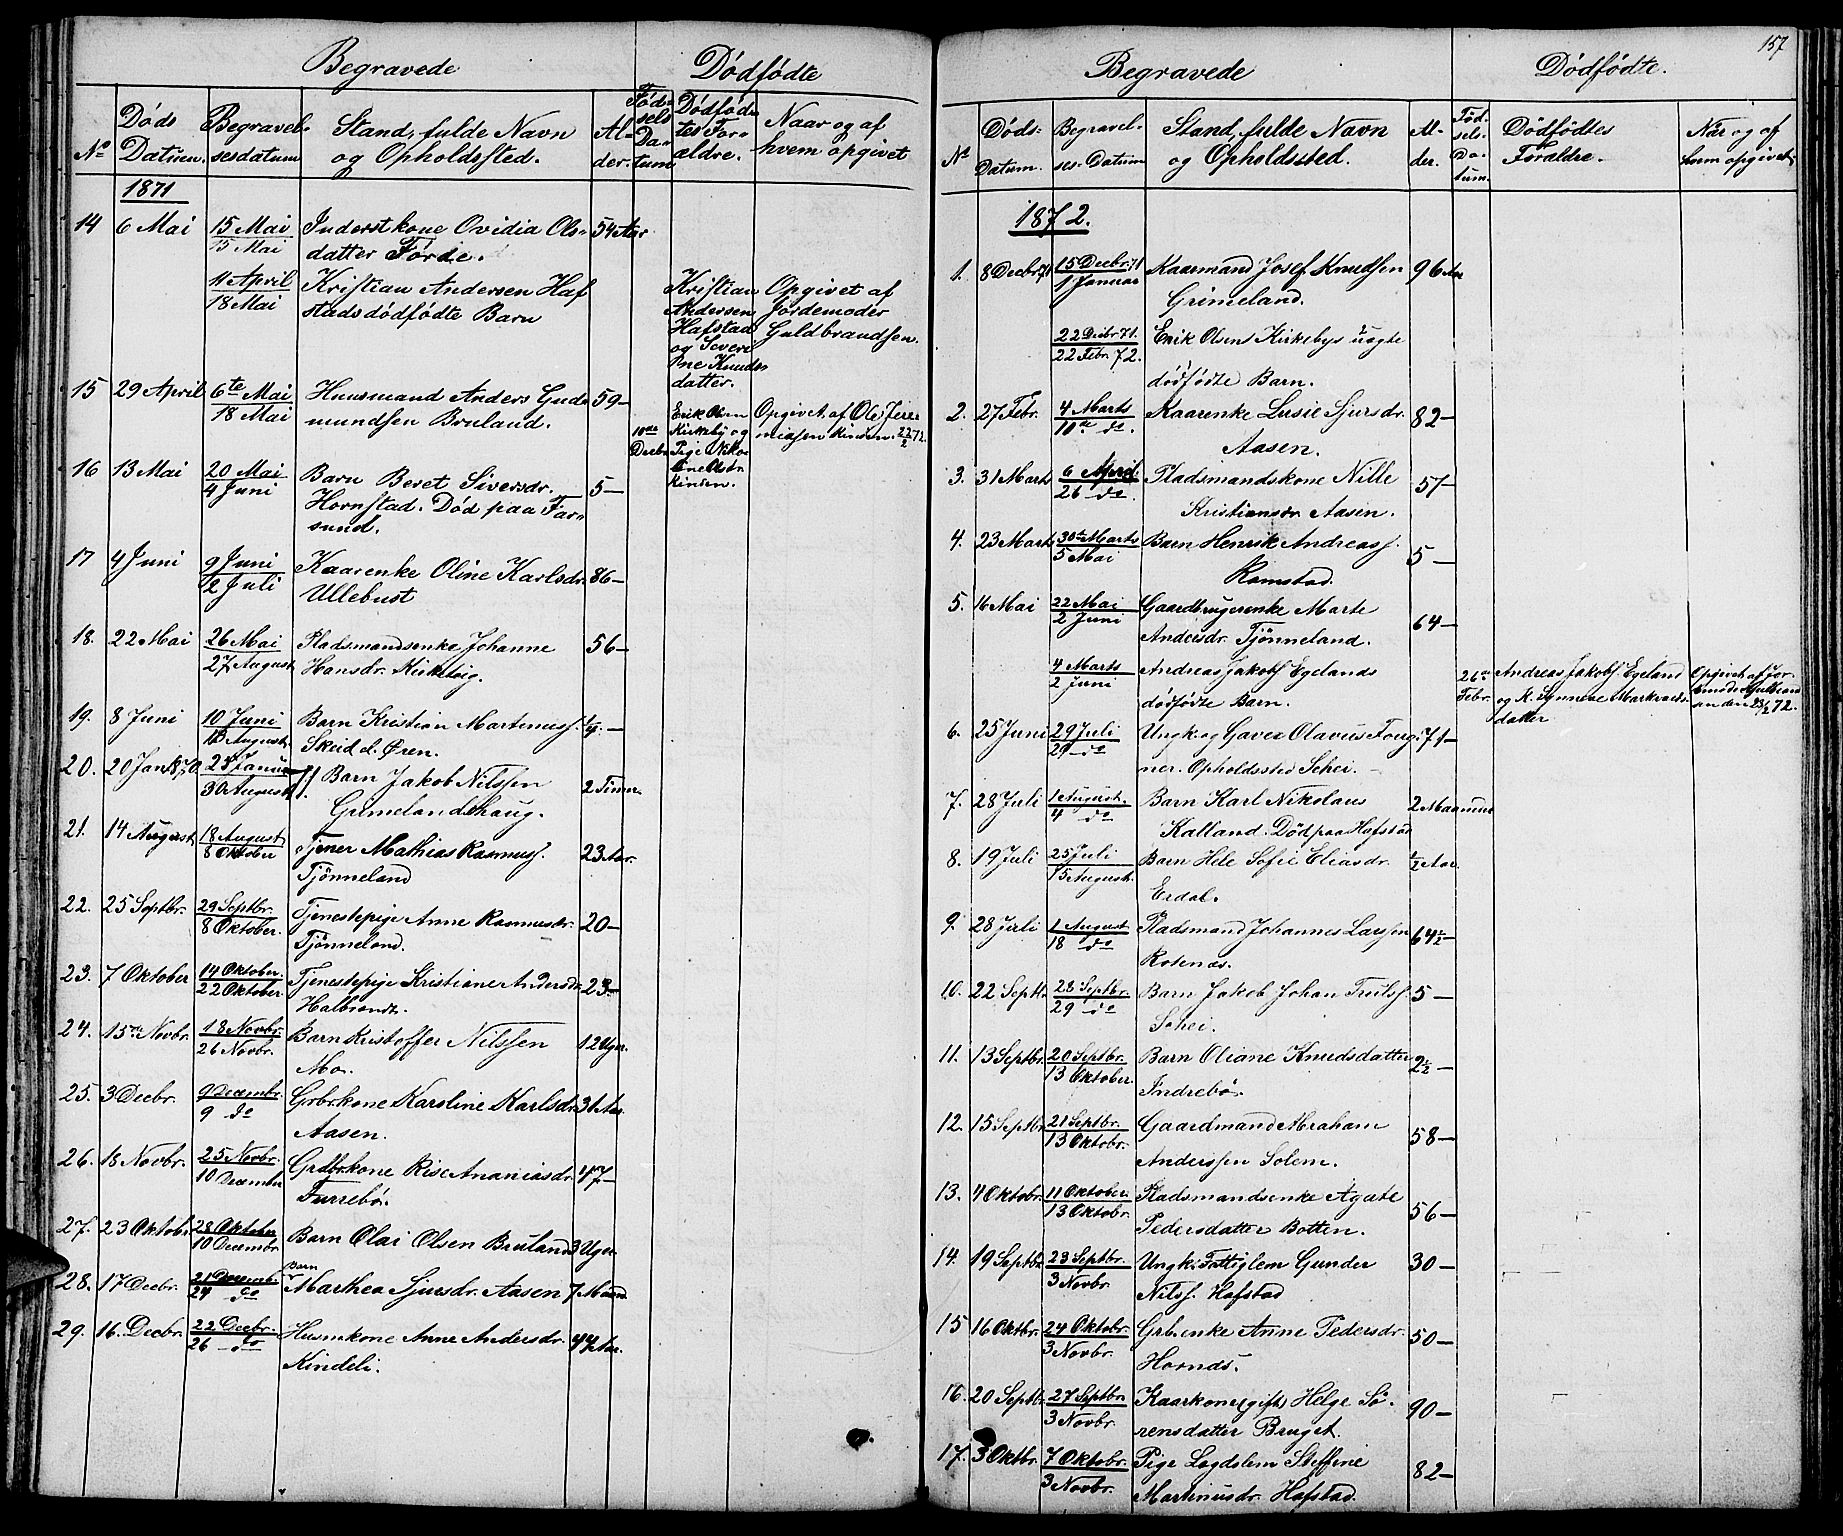 157
Begravede
Dødfødte
No
Døds Datum.
Begravelsesdatum
Stand, fulde Navn og Opholdssted.
Alder.
Fødsels Datum
Dødfødtes Forældre.
Naar og af hvem opgivet
1871
14 6 Mai 15 Mai Inderstkone Ovidia Ols- 54 Aar
15 Mai datter Førde.
11 April Kristian Andersen Haf
18 Mai stads dødfødte Barn
Kristian Opgivet af
Andersen Jordemoder
Hafstad Guldbrandsen.
og Severi
ne Knuds
datter.
15 29 April 6te Mai Huusmand Anders Gud- 59—
18 Mai mundsen Bruland.
10de Decbr
Erik Olsen Opgivet af Ole Jere-
Kirkeby og miassen Kinden. 22/2 72.
Pige Niko-
line Olsdtr
Kinden.
16 13 Mai 20 Mai Barn Beret Siversdr. 5—
4 Juni Hornstad. Død paa Far-
sund.
17 4 Juni 9 Juni Kaarenke Oline Karlsdr. 86—
2 Juli Ullebust
18. 22 Mai 26 Mai Pladsmandsenke Johanne 56—
27 August Hansdr. Kirketeig.
19. 8 Juni 10 Juni Barn Kristian Martinuss.
13 August. Skeid d. Øren.
20. 20 Jan 1870. 23 Januar !! Barn Jakob Nilssen 2 Timer
30 August Grimelandshaug.
21. 14 August 18 August Tjener Mathias Rasmuss. 23 Aar.
8 Oktober Tjønneland
22. 25 Septbr. 29 Septbr. Tjenestepige Anne Rasmusdr. 20—
8 Oktober. Tjønneland.
23. 7 Oktober 14 Oktober. Tjenestepige Kristiane Andersdr. 23—
22 Oktober. Halbrandt.
24. 15de Novbr. 18 Novbr. Barn Kristoffer Nilssen 12 Uger.
26 Novbr. Mo.
25. 3 Decbr. 9 Decembr. Grbr.kone Karoline Karlsdr. 31 Aar.
9 do Aasen.
26. 18 Novbr. 25 Novbr. Grdbrkone Rise Ananiasdr. 47—
10 December Furrebø.
27. 23 Oktobr. 28 Oktober Barn Olai Olsen Bruland 3 Uger
10 Decembr.
28. 17 Decbr. 21 Decemb. Barn Marthea Sjursdr. Aasen 7 Maan.
24 do
29. 16. Decbr. 22 Decbr. Husmkone Anne Andersdr. 44 Aar.
26 do Kindeli.
Begravede
Dødfødte.
No
Døds-Datum.
Begravelses-Datum
Stand, fulde Navn og Opholdssted.
Alder.
Fødsels-Datum.
Dødfødtes Forældre.
Når og af hvem opgivet.
1872.
1. 8 Decbr 71 15 Decbr. 71 Kaarmand Josef Knudsen 96 Aar
1 Januar Grimeland.
22 Decbr 71. Erik Olsens Kirkebys uægte
22 Febr. 72. dødfødte Barn.
2. 27 Febr. 4 Marts Kaarenke Lusie Sjursdr. 82—
10de do. Aasen.
3. 31 Marts 6 April. Pladsmandskone Nille 57—
26 do Kristiansdr Aasen.
4. 23 Marts 30te Marts Barn Henrik Andreass. 5—
5 Mai Ramstad.
5. 16 Mai 22 Mai Gaardbrugerenke Marte 64—
2 Juni Andersdr. Tjønneland.
4 Marts Andreas Jakobs. Egelands
2 Juni dødfødte Barn.
26de Andreas Jakobs. Egeland Opgivet af Jor-
Febr. og K. Synneve Markvards-
datter
6. 25 Juni 29 Juli Ungk. og Gaver Olavus Foug- 71—
29 do ner. Opholdssted Schei.
7. 28 Juli 1 August. Barn Karl Nikolaus 2 Maaneder
4 do Kalland. Død paa Hafstad
8. 19 Juli 25 Juli Barn Hele Sofie Eliasdr. ½ Aar
15 August. Erdal.
9. 28 Juli 1 August Pladsmand Johannes Larssen 64½—
18 do Rotenas.
10. 22 Septbr. 28 Septbr. Barn Jakob Johan Trulss. 5—
29 do Schei.
11. 13 Septbr. 20 Septbr. Barn Oliane Knudsdatter 2½—
13 Oktober. Indrebø.
12. 15 Septbr. 21 Septbr. Gaardmand Abraham 58—
13 Oktobr. Anderssen Solem.
13. 4 Oktobr. 11 Oktober. Pladsmandsenke Agate 56—
13 Oktobr. Pedersdatter Botten.
14. 19 Septbr. 23 Septbr. Ungk. Fattiglem Gunder 30—
3 Novbr. Nilss. Hafstad
15 16 Oktbr. 24 Oktobr. Grb.enke Anne Pedersdr. 50—
3 Novbr. Hornds.
16. 20 Septbr. 27 Septbr Kaarkone (gift) Helge Sø- 90—
3 Novbr. rensdatter Bruget.
17. 3 Oktbr. 7 Oktobr. Pige Legdslem Steffine 82—
3 Novbr. Martinusdr. Hafstad.